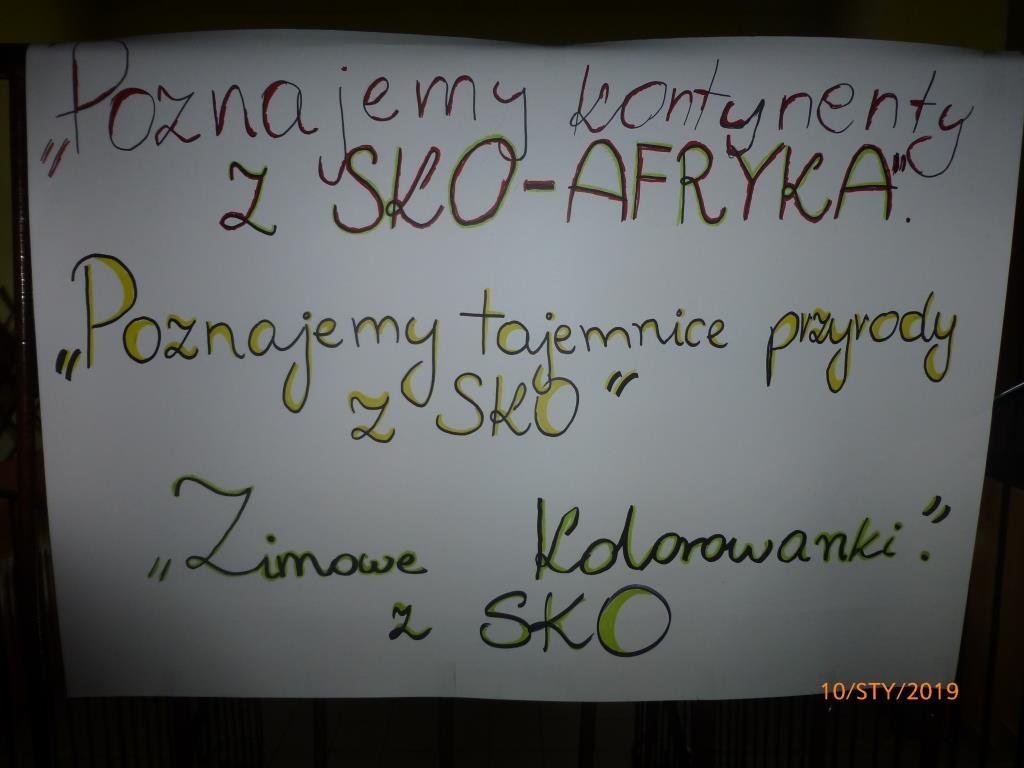 „Poznajemy kontynenty
z SKO-AFRYKA".
„Poznajemy tajemnice przyrody
z SKO"
„Zimowe Kolorowanki."
z SKO
10/STY/2019